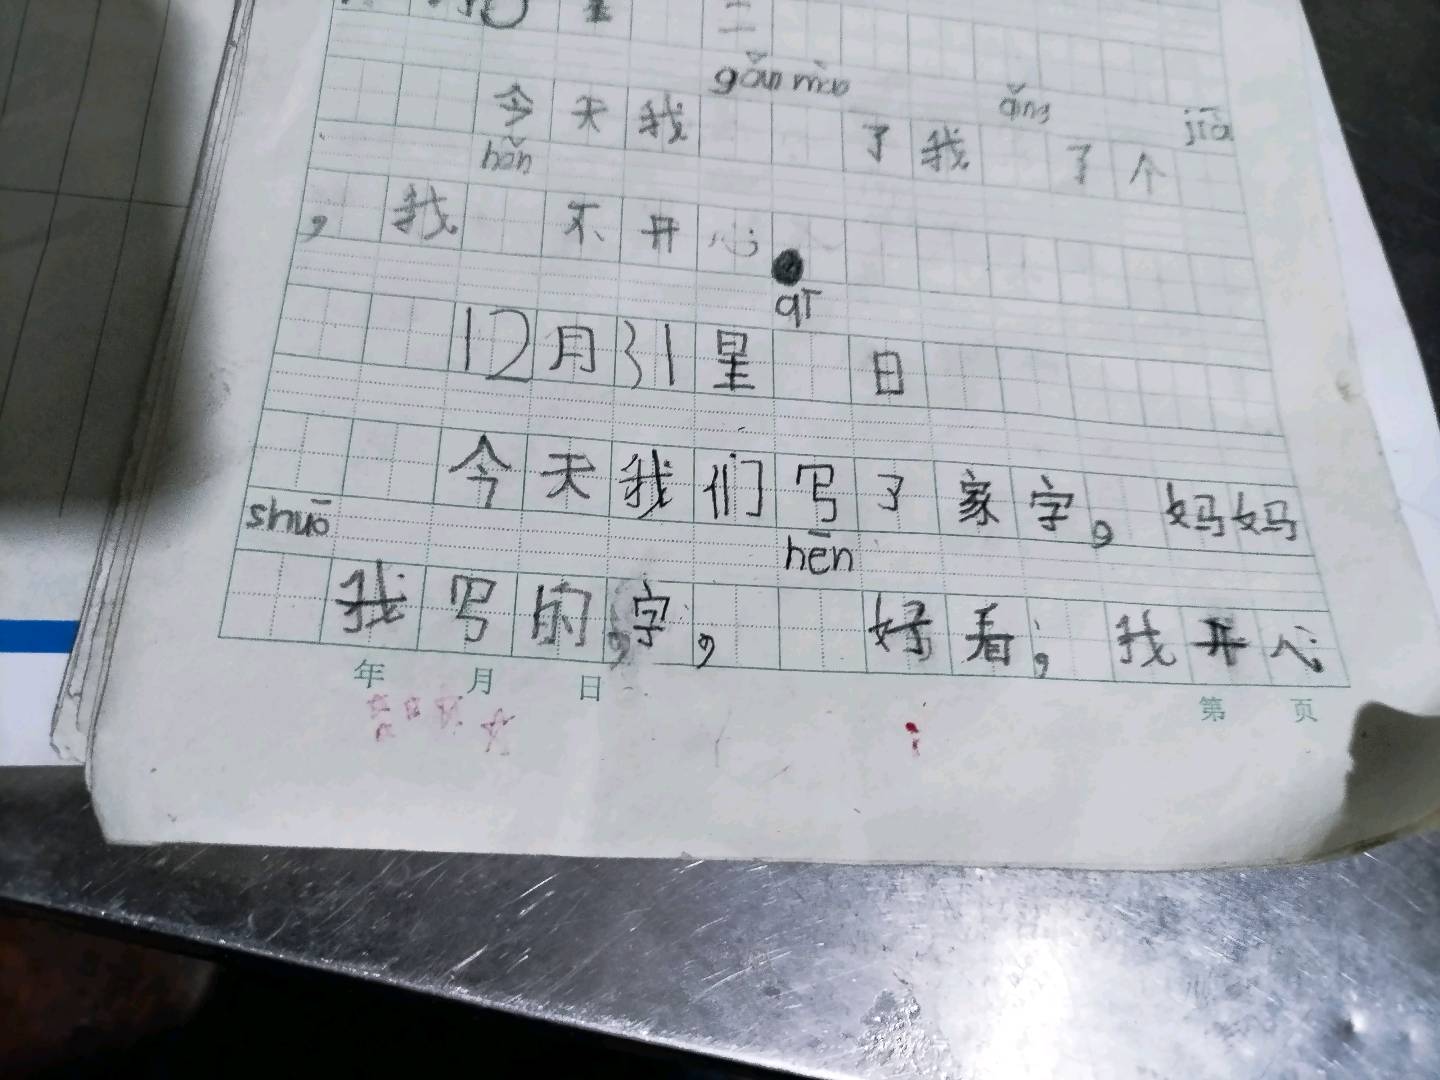 二
gǎn mào
qǐng
jià
今天我了我了个
hěn
，我不开心
qī
12月31星日
今天我们写了家字，妈妈
shuō
hēn
我写的，字，好看，我开心
年 月 日
第 页